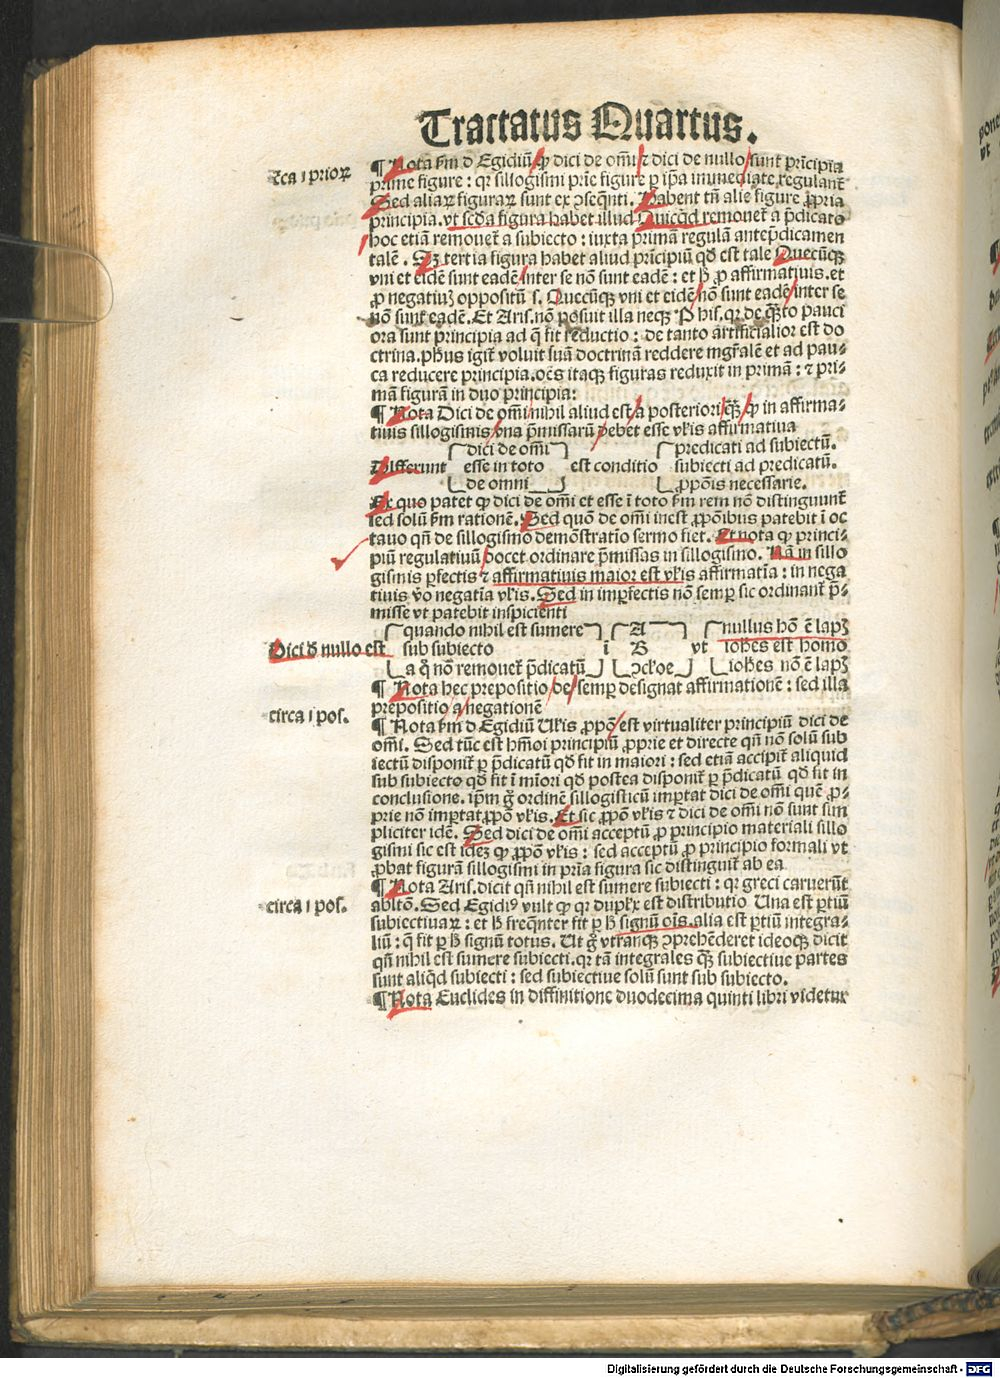 Tractatus Quartus.
c̄ca i prioꝝ
¶ Nota ẜm d Egidiū ꝙ dici de om̄i ⁊ dici de nullo sunt prīcipia
prime figure : qꝛ sillogismi prīe figure ꝑ ip̄a immediate regulant̄
Sed aliaꝝ figuraꝝ sunt ex ꝯseq̄nti. Habent tn̄ alie figure ꝓpria
principia. vt scd̄a figura habet illud Quicq̄d remouet̄ a p̄dicato
hoc etiā remouet̄ a subiecto : iuxta primā regulā antep̄dicamen
talē . Sꝫ tertia figura habet aliud prīcipiū qd̄ est tale Quecūqꝫ
vni et eidē sunt eadē inter se nō sunt eadē : et ꝓ affirmatiuis. et
ꝓ negatiuꝫ oppositū s. Quecūqꝫ vni et eidē nō sunt eadē inter se
nō sunt eadē. Et Aris. nō posuit illa neqꝫ P his. qꝛ de q̄ꝫto pauci
ora sunt principia ad q̄ fit reductio : de tanto artificialior est do
ctrina. ph̄us igit̄ voluit suā doctrinā reddere mgr̄alē et ad pau⸗
ca reducere principia. oēs itaqꝫ figuras reduxit in primā : ⁊ pri⸗
mā figurā in duo principia:
¶ Nota Dici de om̄i nihil aliud est a posteriori q̄ꝫ ꝙ in affirma⸗
tiuis sillogismis vna p̄missarū debet esse vl̄is affirmatiua
dici de om̄i predicati ad subiectū.
Differunt esse in toto est conditio subiecti ad predicatū.
de omni ꝓpōis necessarie.
Ex quo patet ꝙ dici de om̄i et esse ī toto ẜm rem nō distinguunt̄
sed solū ẜm rationē. Sed quō de om̄i inest ꝓpōibus patebit ī oc
tauo qn̄ de sillogismo demōstratio sermo fiet. Et nota ꝙ princi⸗
piū regulatiuū docet ordinare p̄missas in sillogismo. Nā in sillo
gismis ꝑfectis ⁊ affirmatiuis maior est vl̄is affirmatīa : in nega
tiuis v̄o negatīa vl̄is. Sed in imꝑfectis nō semꝑ sic ordinant̄ p̄⸗
misse vt patebit inspicienti
quando nihil est sumere A nullus hō ē lapꝫ
Dici d̄ nullo est sub subiecto ī B vt ioh̄es est homo
a q̄ nō remouet̄ p̄dicatū ioh̄es nō ē lapꝫ
¶ Nota hec prepositio de semꝑ designat affirmationē : sed illa
prepositio a negationē
circa i pos.
¶ Nota ẜm d Egidiū Vl̄is ꝓpō est virtualiter principiū dici de
om̄i. Sed tūc est hm̄oi principiū ꝓprie et directe qn̄ nō solū sub
iectū disponit̄ ꝑ p̄dicatū qd̄ fit in maiori : sed etiā accipit̄ aliquid
sub subiecto qd̄ fit ī mīori qd̄ postea disponit̄ ꝑ p̄dicatū qd̄ fit in
conclusione. ip̄m g̊ ordinē sillogisticū imꝑtat dici de om̄i quē ꝓ⸗
prie nō imꝑtat ꝓpō vl̄is. Et sic ꝓpō vl̄is ⁊ dici de om̄i nō sunt sim
pliciter idē. Sed dici de om̄i acceptū ꝓ principio materiali sillo
gismi sic est idez ꝙ ꝓpō vl̄is : sed acceptū ꝓ principio formali vt
ꝓbat figurā sillogismi in prīa figura sic distinguit̄ ab ea
¶ Nota Aris. dicit qn̄ nihil est sumere subiecti : qꝛ greci caruerūt
ablt̄o. Sed Egidiꝰ vult ꝙ qꝛ dupl̄x est distributio Una est ꝑtiū
subiectiuaꝝ : et freq̄nter fit ꝑ signū oīs. alia est ꝑtiū integra⸗
circa i pos.
liū : q̄ fit ꝑ signū totus. Ut g̊ vtranqꝫ ꝯprehēderet ideoqꝫ dicit
qn̄ nihil est sumere subiecti. qꝛ tā integrales q̄ꝫ subiectiue partes
sunt aliq̄d subiecti : sed subiectiue solū sunt sub subiecto.
¶ Nota Euclides in diffinitione duodecima quinti libri videtur
Digitalisierung gefördert durch die Deutsche Forschungsgemeinschaft - DFG